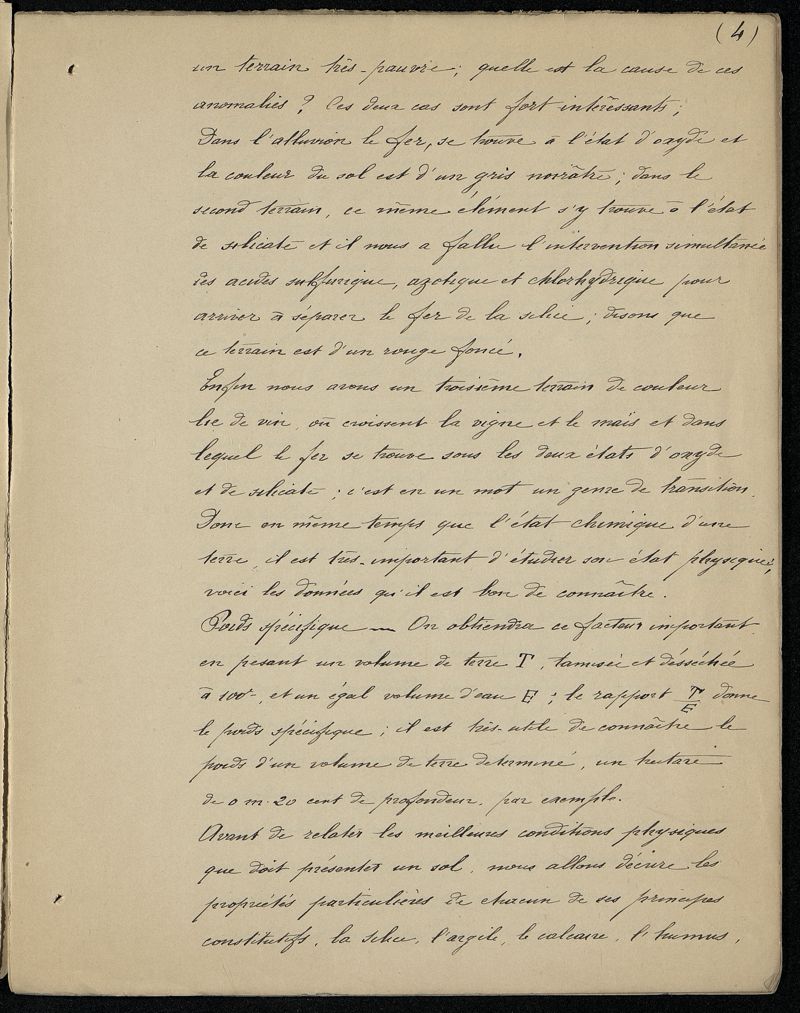 (4)
un terrain très-pauvre; quelle est la cause de ces
anomalies? Ces deux cas sont fort intéressants;
Dans l'alluvion le fer, se trouve à l'état d'oxyde et
la couleur du sol est d'un gris noirâtre; dans le
second terrain, ce même élément s'y trouve à l'état
de silicate et il nous a fallu l'intervention simultanée
des acides sulfurique, azotique et chlorhydrique pour
arriver à séparer le fer de la silice; disons que
ce terrain est d'un rouge foncé.
Enfin nous avons un troisième terrain de couleur
lie de vin, où croissent la vigne et le maïs et dans
lequel le fer se trouve sous les deux états d'oxyde
et de silicate; c'est en un mot un genre de transition.
Donc en même temps que l'état chimique d'une
terre, il est très-important d'étudier son état physique;
voici les données qu'il est bon de connaître.
Poids spécifique — On obtiendra ce facteur important
en pesant un volume de terre T, tamisée et désséchée
à 100°, et un égal volume d'eau E; le rapport T/E donne
le poids spécifique; il est très-utile de connaître le
poids d'un volume de terre déterminé, un hectare
de 0 m. 20 cent de profondeur, par exemple.
Avant de relater les meilleures conditions physiques
que doit présenter un sol, nous allons décrire les
propriétés particulières de chacun de ses principes
constitutifs, la silice, l'argile, le calcaire, l'humus,